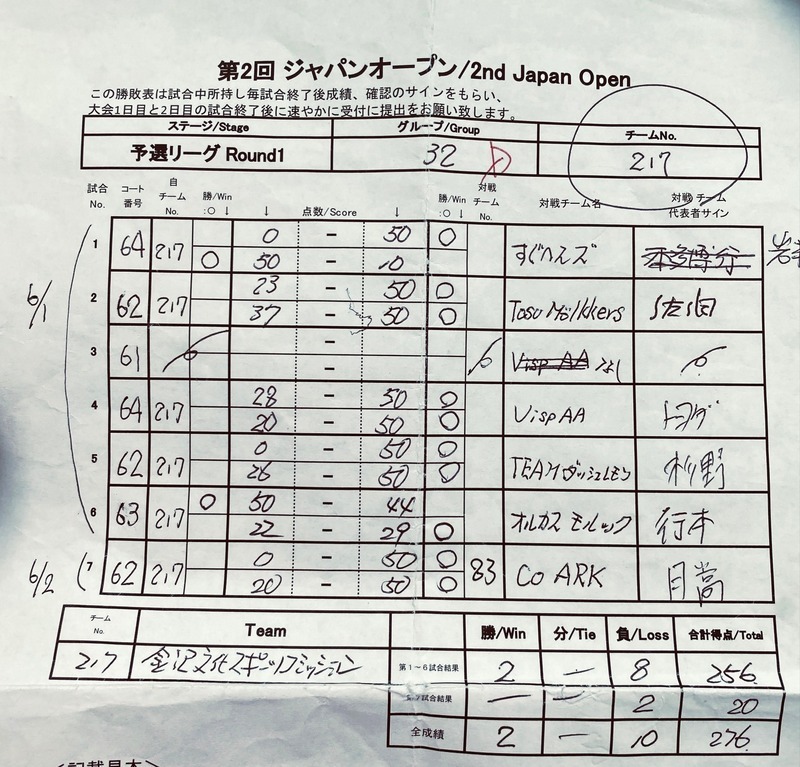 第2回 ジャパンオープン/2nd Japan Open
この勝敗表は試合中所持し毎試合終了後成績、確認のサインをもらい、
大会1日目と2日目の試合終了後に速やかに受付に提出をお願い致します。
ステージ/Stage グループ/Group チームNo.
予選リーグ Round1 32 217
試合 No. コート 番号 自 チーム No. 勝/Win :○ ↓ ↓ 点数/Score ↓ 勝/Win :○ ↓ 対戦 チーム No. 対戦チーム名 対戦 チーム 代表者サイン
6/1
1 64 217 0 - 50 ○ すぐへんズ
○ 50 - 10
2 62 217 23 - 50 ○ Tosu Mölkkers
37 - 50 ○
3 61 - Visp AA なし
-
4 64 217 28 - 50 ○ Visp AA トヨダ
20 - 50 ○
5 62 217 0 - 50 ○ TEAMダッシュレモン 杉野
26 - 50 ○
6 63 217 ○ 50 - 44 オルカス モルック 行本
22 - 29 ○
6/2
7 62 217 0 - 50 ○ 83 Co ARK 目當
20 - 50 ○
チーム No. Team 勝/Win 分/Tie 負/Loss 合計得点/Total
217 金沢文化スポーツコミッション 第1～6試合結果 2 ー 8 256
試合結果 ー ー 2 20
全成績 2 ー 10 276